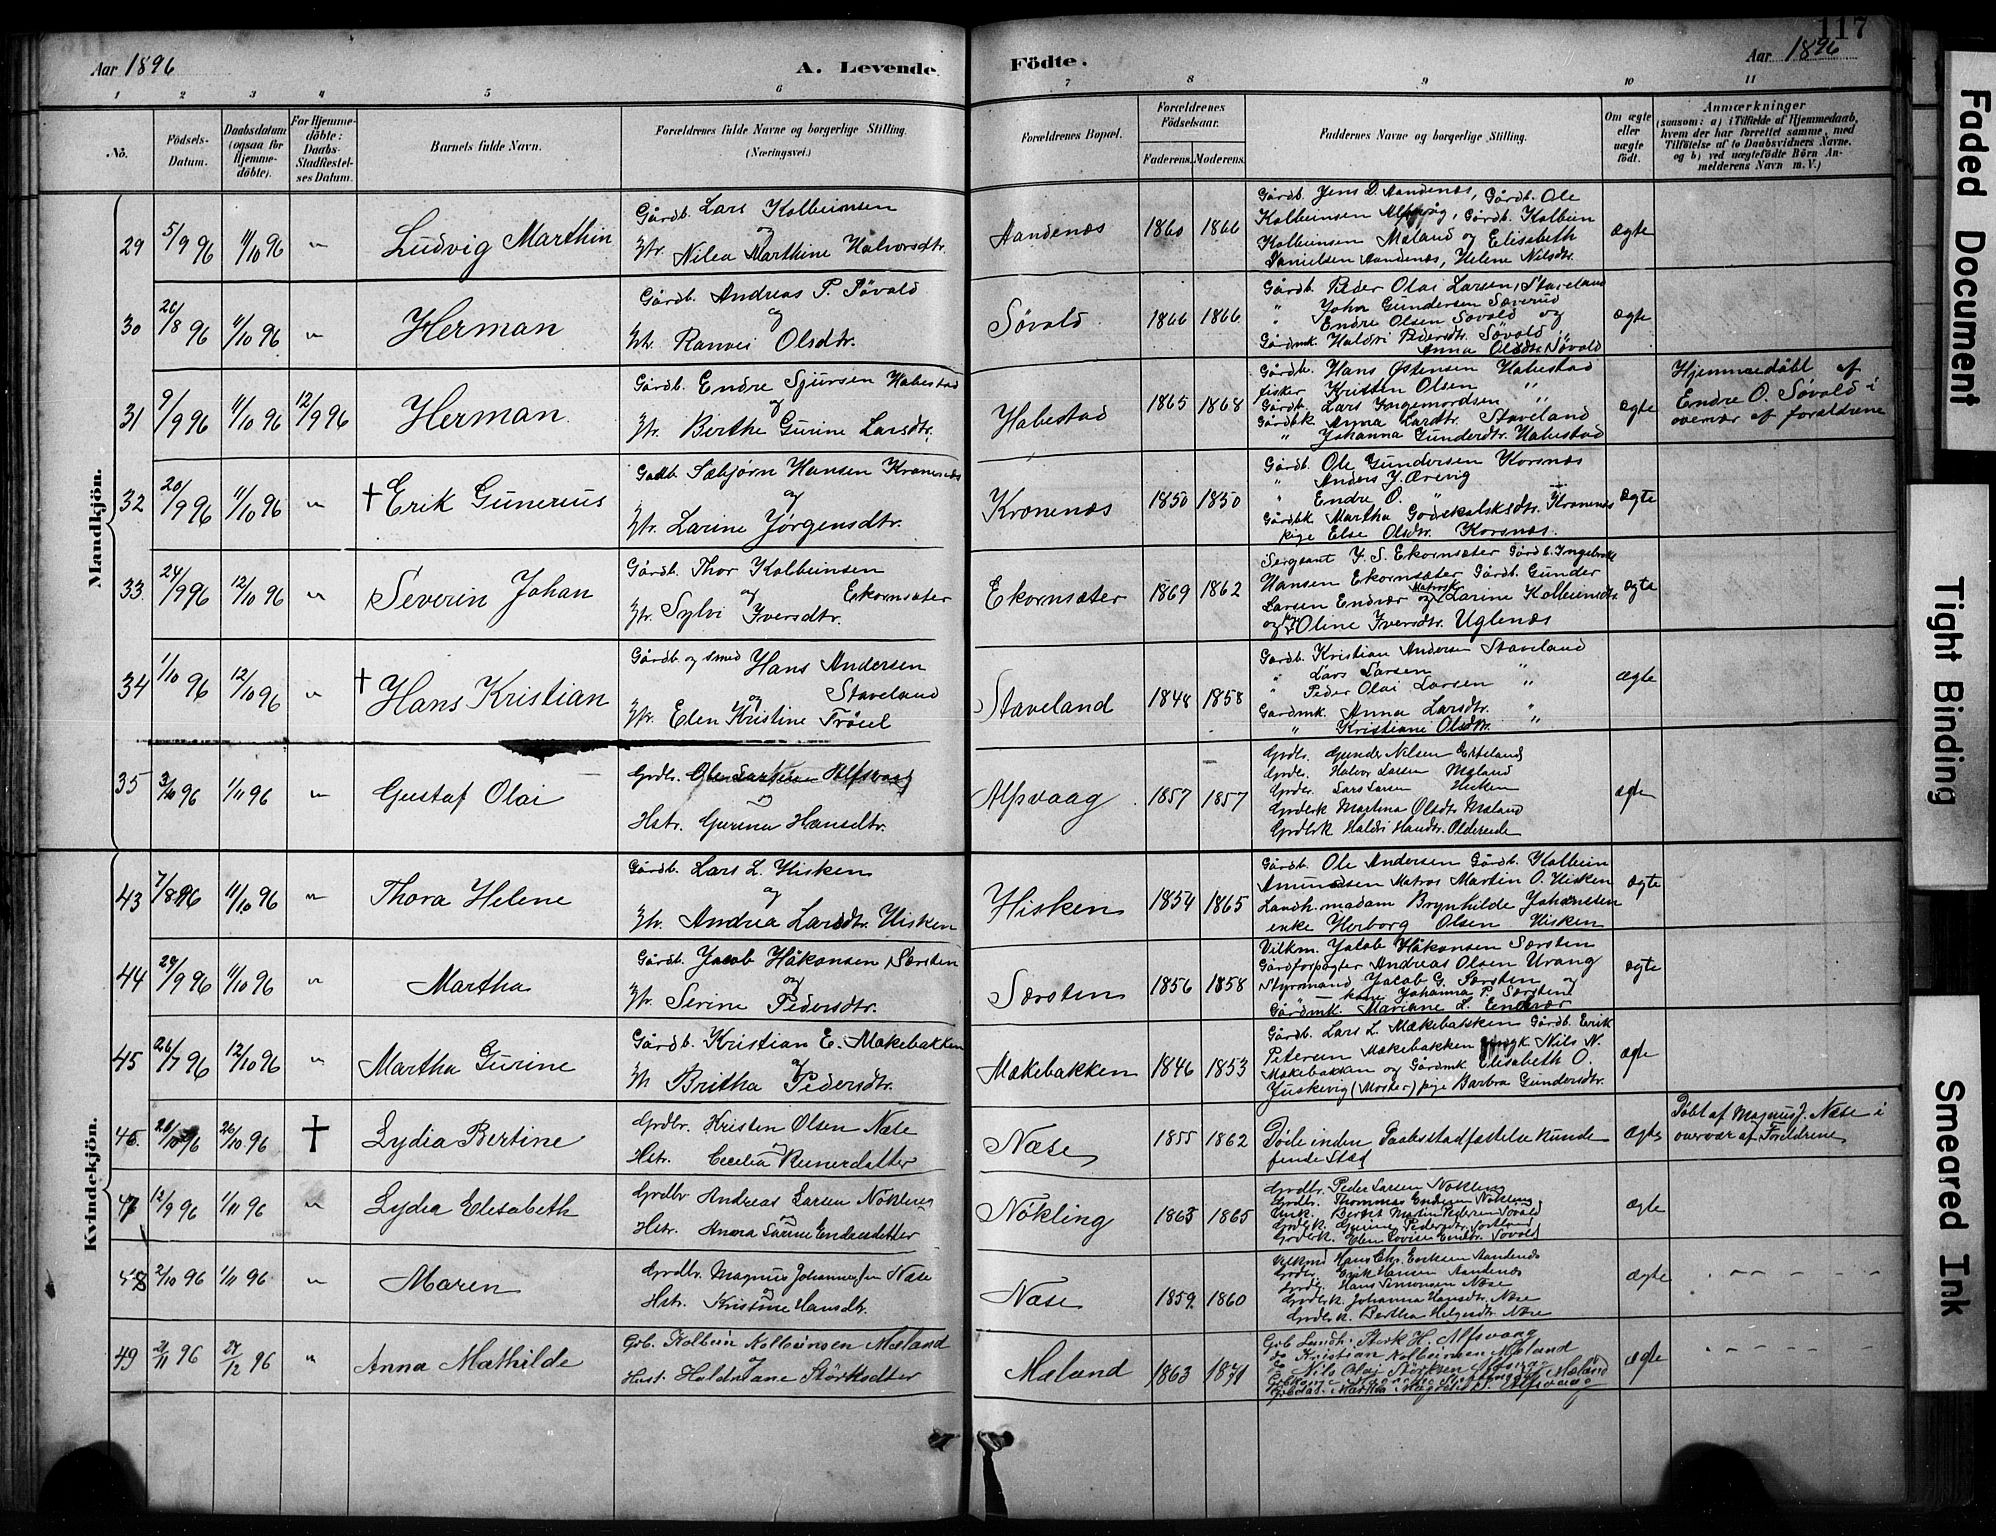 117
Aar 1896
A. Levende
Födte.
Aar 1896
1 2 3 4 5 6 7 8 9 10 11
No.
Födsels-Datum.
Daabsdatum (ogsaa för Hjemmedöbte).
For Hjemmedöbte: Daabs-Stadfæstelses Datum.
Barnets fulde Navn.
Forældrenes fulde Navne og borgerlige Stilling. (Næringsvei.)
Forældrenes Bopæl.
Forældrenes Födselsaar.
Faderens. Moderens.
Faddernes Navne og borgerlige Stilling.
Om ægte eller uægte født.
Anmærkninger
(saasom: a) i Tilfælde af Hjemmedaab, hvem der har forrettet samme, med Tilföielse af to Daabsvidners Navne, og b) ved uægtefödte Börn Anmelderens Navn m. V.)
Mandkjön.
29 5/9 96 11/10 96 " Ludvig Marthin
Gårdb. Lars Kolbeinsen
og
Hstr. Nilea Marthine Halvorsdtr.
Aandenæs 1860 1866
Gårdb. Jens D. Aandenæs, Gårdb. Ole
Kolbeinsen Alfsvåg, Gårdb. Kolbein
Kolbeinsen Mæland og Elisabeth
Danielsen Aandenæs, Helene Nilsdtr.
ægte
30 26/8 96 11/10 96 " Herman
Gårdb. Andreas P. Søvold
og
Hstr. Ranvei Olsdtr.
Søvold 1866 1866
Gårdb. Peder Olai Larsen, Staveland
" John Gundersen
" Endre Olsen Søvold og
Gårdmk. Haldri Pedersdtr. Søvold
Anna Olsdtr. Søvold
ægte
31 9/9 96 11/10 96 12/9 96 Herman
Gårdb. Endre Sjursen Habestad
og
Hstr. Berthe Gurine Larsdtr.
Habestad 1865 1868
Gårdb. Hans Østensen Habestad
fisker Kristen Olsen "
Gårdb. Lars Ingemordsen "
Gårdbk Anna Larsdtr. Staveland
" Johanna Gundersdtr. Habestad
ægte
Hjemmedøbt af
Endre O. Søvold i
overvær af forældrene
32 20/9 96 11/10 96 " † Erik Gunerius
Gårdb. Sæbjørn Hansen Kronenæs
og
Hstr. Larine Jørgensdtr.
Kronenæs 1850 1850
Gårdb. Ole Gundersen Korsnæs
" Anders J.
" Endre O. "
Gårdbk. Martha Godskalksdtr. Kronenæs
pige Else Olsdtr. Korsnæs.
ægte
33 24/9 96 12/10 96 " Severin Johan
Gårdb. Thor Kolbeinsen
og Ekornsæter
Hstr. Sylvi Iversdtr.
Ekornsæter 1869 1862
Sergeant J. S. Ekornsæter Gårdb.
Hansen Ekornsæter Gårdb. Gunder
Larsen Endvær og Larine Kolbeinsdtr.
og Oline Iversdtr. Uglenæs
ægte
34 1/10 96 12/10 96 " † Hans Kristian
Gårdb. og smed Hans Andersen
og Staveland
Hstr. Elen Kristine Trösel
Staveland 1848 1858
Gårdb. Kristian Andersen Staveland
" Lars Larsen "
" Peder Olai Larsen "
Gårdmk. Anna Larsdtr. "
" Kristiane Olsdtr. "
ægte
35 3/10 96 1/11 96 " Gustaf Olai
Grdbr. Alfsvaag
og
Hstr. Gurina Hansdtr.
Alfsvaag 1857 1857
Grdbr. Gunder Nilsen
Grdbr. Halvor Larsen Mæland
Grdbr. Lars Larsen Hisken
Grdbrk Martina Olsdtr. Mæland
Grdbrk Haldri Hansdtr. Oldereide
ægte
Kvindekjön.
43 7/8 96 11/10 96 " Thora Helene
Gårdb. Lars L. Hisken
og
Hstr. Andrea Larsdtr. Hisken
Hisken 1854 1865
Gårdb. Ole Andersen Gårdb. Kolbein
Amundsen Matros Martin O. Hisken
Landh. madam Brynhilde Johansen
enke Herborg Olsen Hisken
ægte
44 29/9 96 11/10 96 " Martha
Gårdb. Jacob Håkonsen Sørsten
og
Hstr. Serine Pedersdtr.
Sørsten 1856 1858
Vilkm. Jacob Håkonsen Sørsten
Gårdforpagter Andreas Olsen Urang
Styrmand Jacob G. Sørsten og
kone Johanna P. Sørsten
Gårdmk. Mariane L. Endvær
ægte
45 26/7 96 12/10 96 " Martha Gurine
Gårdb. Kristian E. Mækebakken
og
Hstr. Britha Pedersdtr.
Mækebakken 1846 1853
Gårdb. Lars L. Mækebakken Gårdb. Erik
Petersen Mækebakken Nils N.
Mækebakken og Gårdmk. Elisabeth O.
Juskevig (Moster) pige Barbra Gundersdtr.
ægte
46 96 26/10 96 † Lydia Bertine
Grdbr. Kristen Olsen Næse
og
Hstr. Cecilia
Næse 1855 1862
Døde inden Daabsstadfæstelse kunde
finde Sted
ægte
Døbt af Magnus J. Næse i
overvær af Forældrene
47 12/9 96 1/11 96 " Lydia Elisabeth
Grdbr Andreas Larsen Nökling
og
Hstr. Anna Larine Endresdatter
Nökling 1863 1865
Grdbr. Peder Larsen Nökling
Grdbr. Thommas Endresen Nökling
Martin Pedersen Søvold
Grdbrk. Gurine Pedersdtr.
Grdbrk. Elen Lovise Endrdtr. Søvold
ægte
48 2/10 96 1/11 96 " Maren
Grdbr. Magnus Johannessen Næse
og
Hstr. Kristine Hansdtr.
Næse 1859 1860
Vilkmd Hans Chr. Eriksen Aandenæs
Grdbr. Erik Hansen Aandenæs
Grdbr. Hans Simonsen Næse
Grdbrk Johanna Hansdtr. Næse
Grdbrk. Bertha Helgesdtr. Næse
ægte
49 21/11 96 27/12 96 " Anna Mathilde
Grb. Kolbein Kolbeinsen Mæland
og
Hust. Haldis Jane Störksdtter
Mæland 1863 1871
Grb Lundh. Störk H. Alfsvaag
do Kristian Kolbeinsen Mæland
do Nils Olai Störksen Alfsvag
Mæland
Martha S. Alfsvaag
ægte
Faded Document
Tight Binding
Smeared Ink